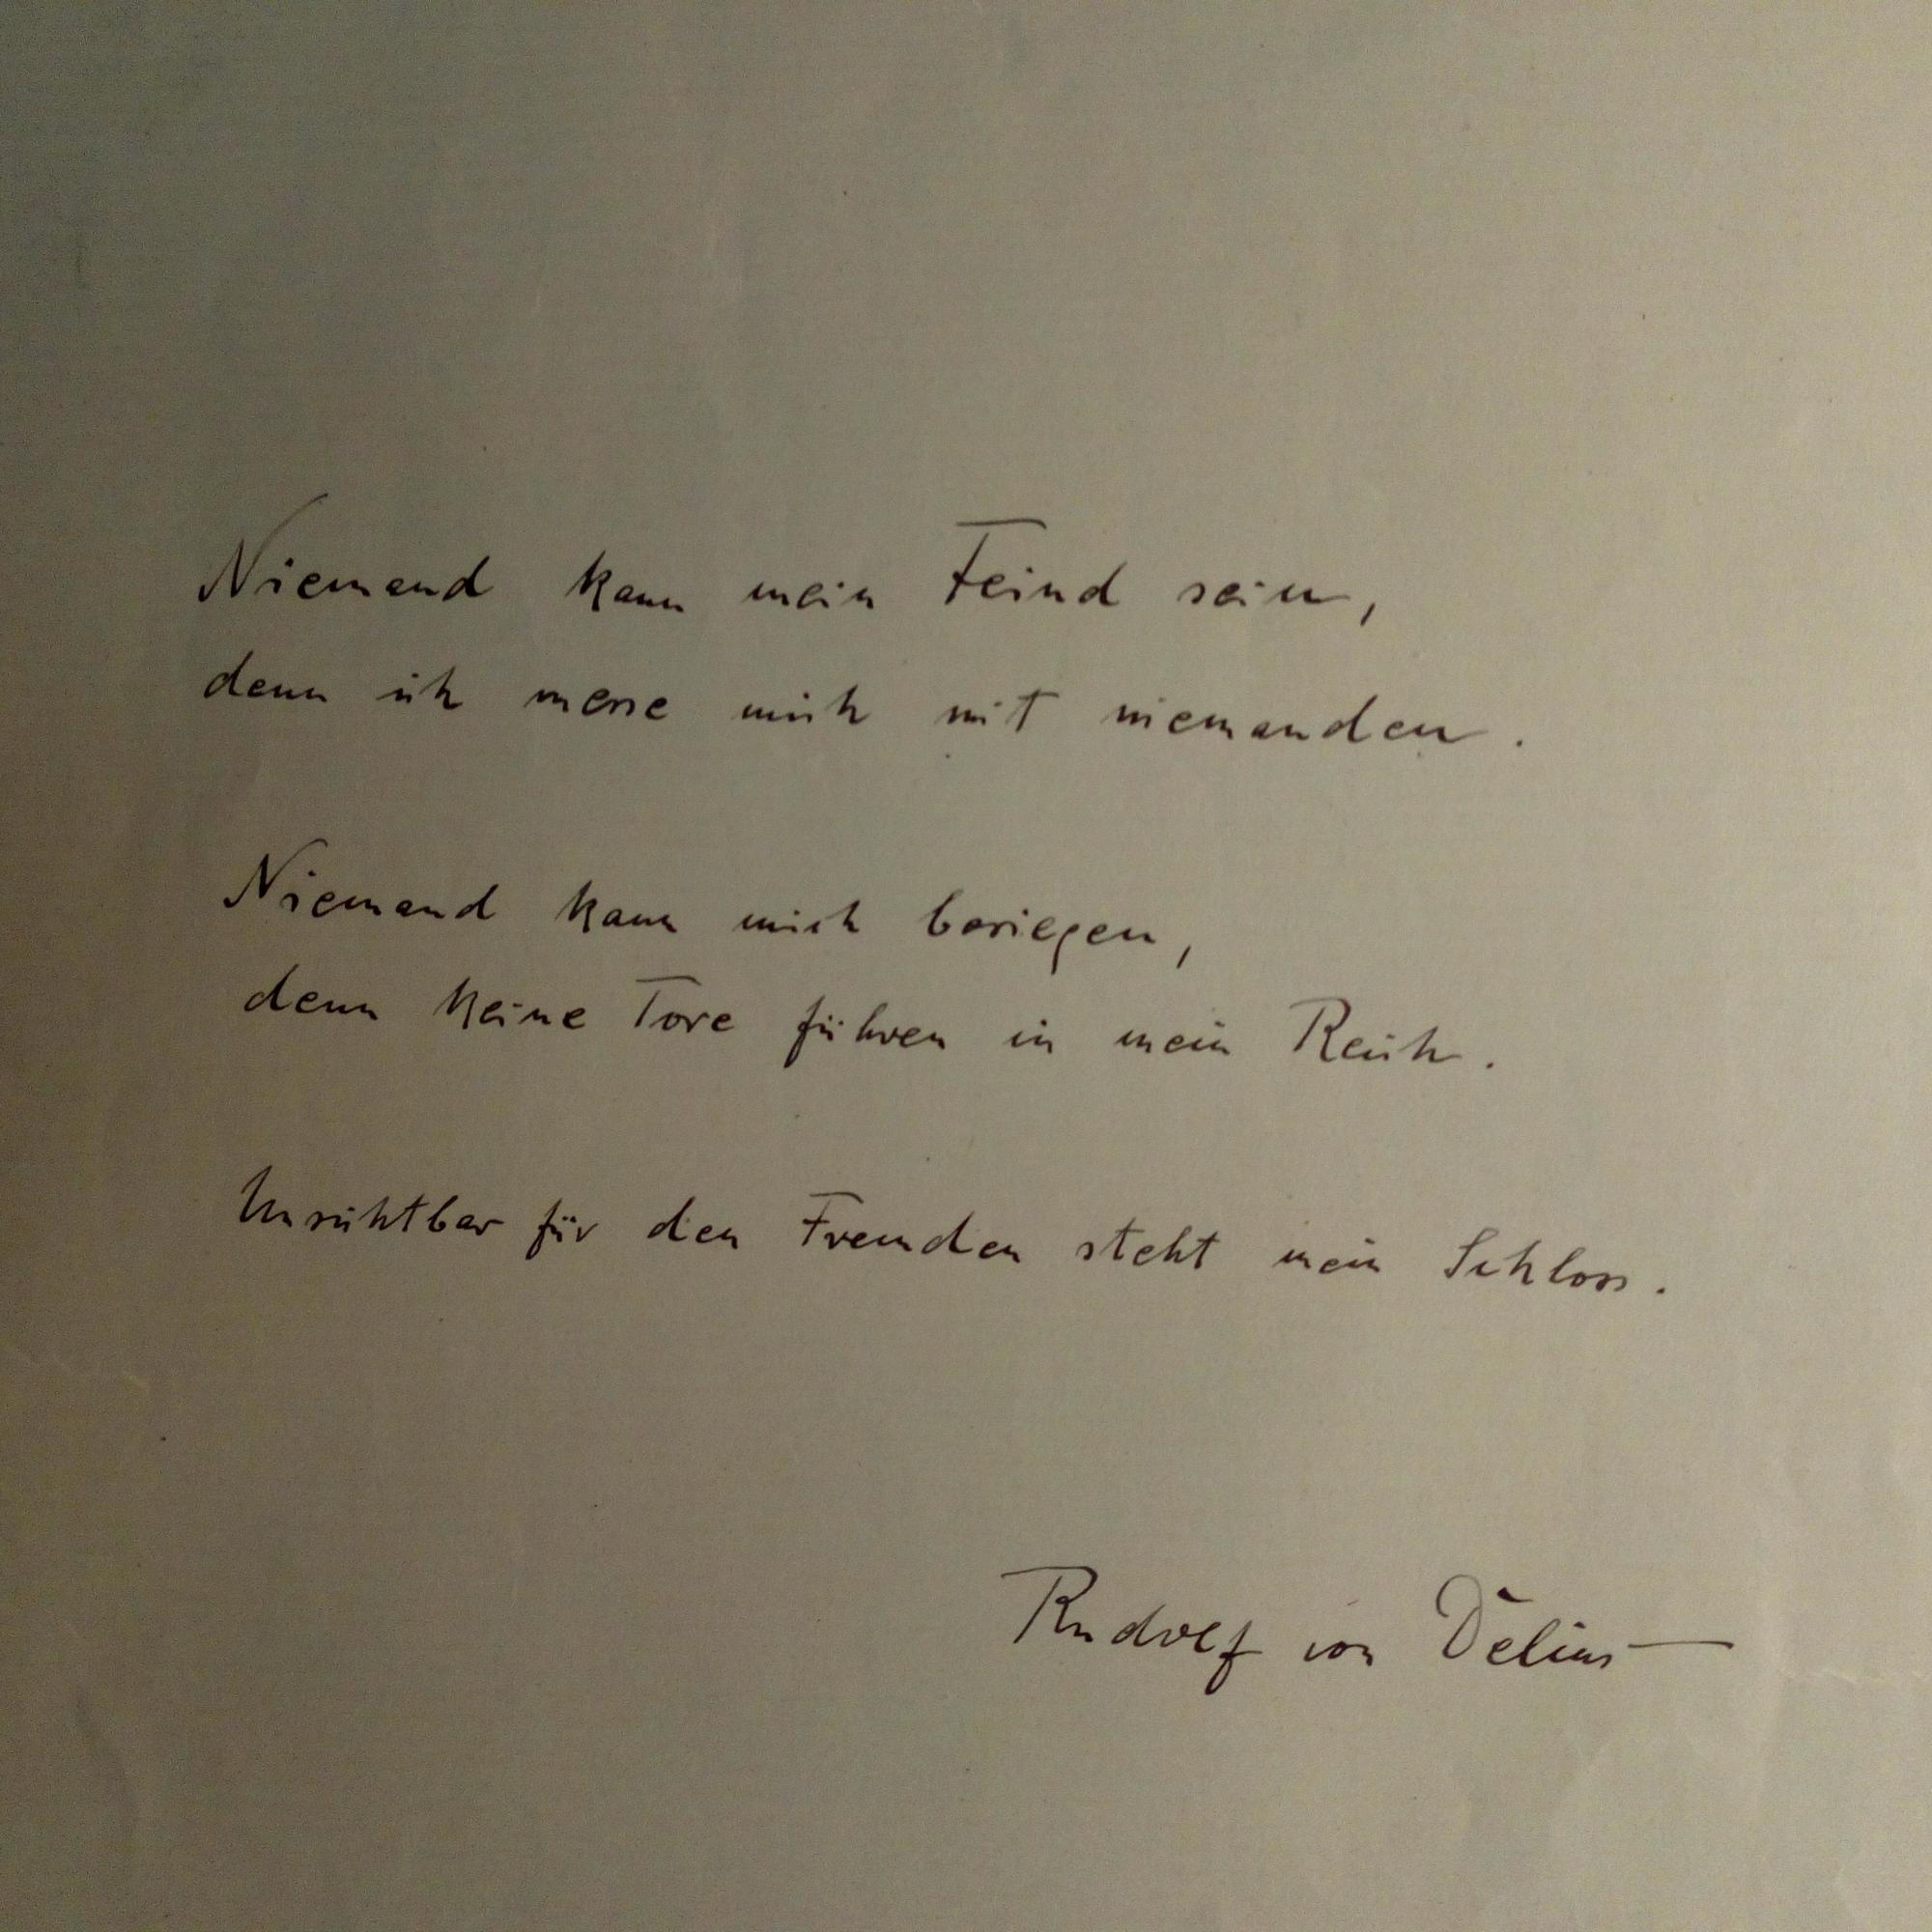 Niemand kann mein Feind sein,
denn ich messe mich mit niemanden.
Niemand kann mich besiegen,
denn keine Tore führen in mein Reich.
Unsichtbar für den Fremden steht mein Schloss.
Rudolf von Delius